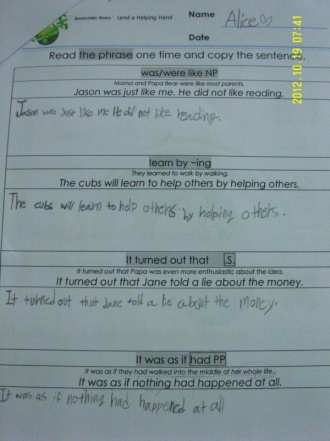 Berenstain Bears Lend a Helping Hand
Name Alice♡
Date
Read the phrase one time and copy the sentence.
was/were like NP
Mama and Papa Bear were like most parents.
Jason was just like me. He did not like reading.
Jason was just like me. He did not like reading.
learn by ~ing
They learned to walk by walking.
The cubs will learn to help others by helping others.
The cubs will learn to help others by helping others.
It turned out that S.
It turned out that Papa was even more enthusiastic about the idea.
It turned out that Jane told a lie about the money.
It turned out that Jane told a lie about the money.
It was as if had PP
It was as if they had walked into the middle of her whole life.
It was as if nothing had happened at all.
It was as if nothing had happened at all
2012.10.29 07:41